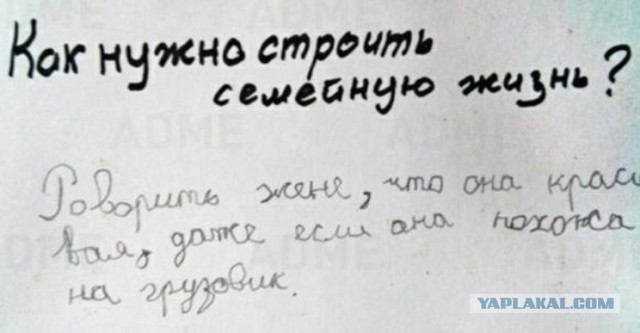 Как нужно строить
семейную жизнь?
Говорить жене, что она краси
вая, даже если она похожа
на грузовик.
YAPLAKAL.COM